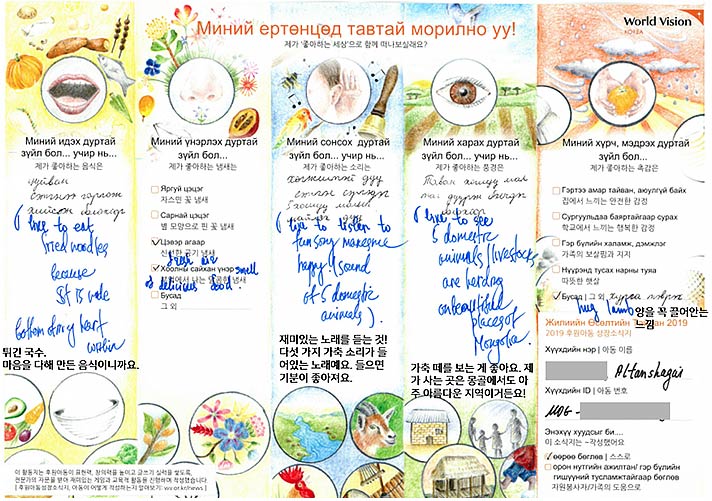 Миний ертөнцөд тавтай морилно уу!
제가 '좋아하는 세상'으로 함께 떠나보실래요?
World Vision
KOREA
Миний идэх дуртай
зүйл бол... учир нь...
제가 좋아하는 음식은
цуйван
I like to eat
fried noodles
because
it is made
bottom of my heart
within
튀긴 국수.
마음을 다해 만든 음식이니까요.
Миний үнэрлэх дуртай
зүйл бол... учир нь...
제가 좋아하는 냄새는
Яргуй цэцэг
자스민 꽃 냄새
Сарнай цэцэг
별 모양으로 핀 꽃 냄새
Цэвэр агаар
신선한 공기 냄새
fresh air
Хоолны сайхан үнэр
smell
of delicious food.
Бусад
그 외
Миний сонсох дуртай
зүйл бол... учир нь...
제가 좋아하는 소리는
хөгжилтэй дуу
I like to listen to
fun song makes me
happy! (sound
of 5 domestic
animals).
재미있는 노래를 듣는 것!
다섯 가지 가축 소리가 들
어있는 노래예요. 들으면
기분이 좋아져요.
Миний харах дуртай
зүйл бол... учир нь...
제가 좋아하는 풍경은
Таван хошуу мал
I like to see
5 domestic
animals (livestocks)
are herding
on beautiful
places of
Mongolia.
가축 떼를 보는 게 좋아요. 제
가 사는 곳은 몽골에서도 아
주 아름다운 지역이거든요!
Миний хүрч, мэдрэх дуртай
зүйл бол... учир нь...
제가 좋아하는 촉감은
Гэртээ амар тайван, аюулгүй байх
집에서 느끼는 안전한 감정
Сургуульдаа баяртайгаар сурах
학교에서 느끼는 행복한 감정
Гэр бүлийн халамж, дэмжлэг
가족의 보살핌과 지지
Нүүрэнд тусах нарны туяа
따뜻한 햇살
Бусад | 그 외
hug lamb
양을 꼭 끌어안는
느낌
Жилийн Өсөлтийн 2019
2019 후원아동 성장소식지
Хүүхдийн нэр | 아동 이름
Altanshagai
Хүүхдийн ID | 아동 번호
MDG -
Энэхүү хуудсыг би....
이 소식지는 ~작성했어요
өөрөө бөглөв | 스스로
орон нутгийн ажилтан/ гэр бүлийн
гишүүний тусламжтайгаар бөглөв
자원봉사자/가족의 도움으로
이 활동지는 후원아동이 표현력, 창의력을 높이고 글쓰기 실력을 쌓도록,
전문가의 자문을 받아 재미있는 게임과 교육적 활동을 진행하며 작성했습니다.